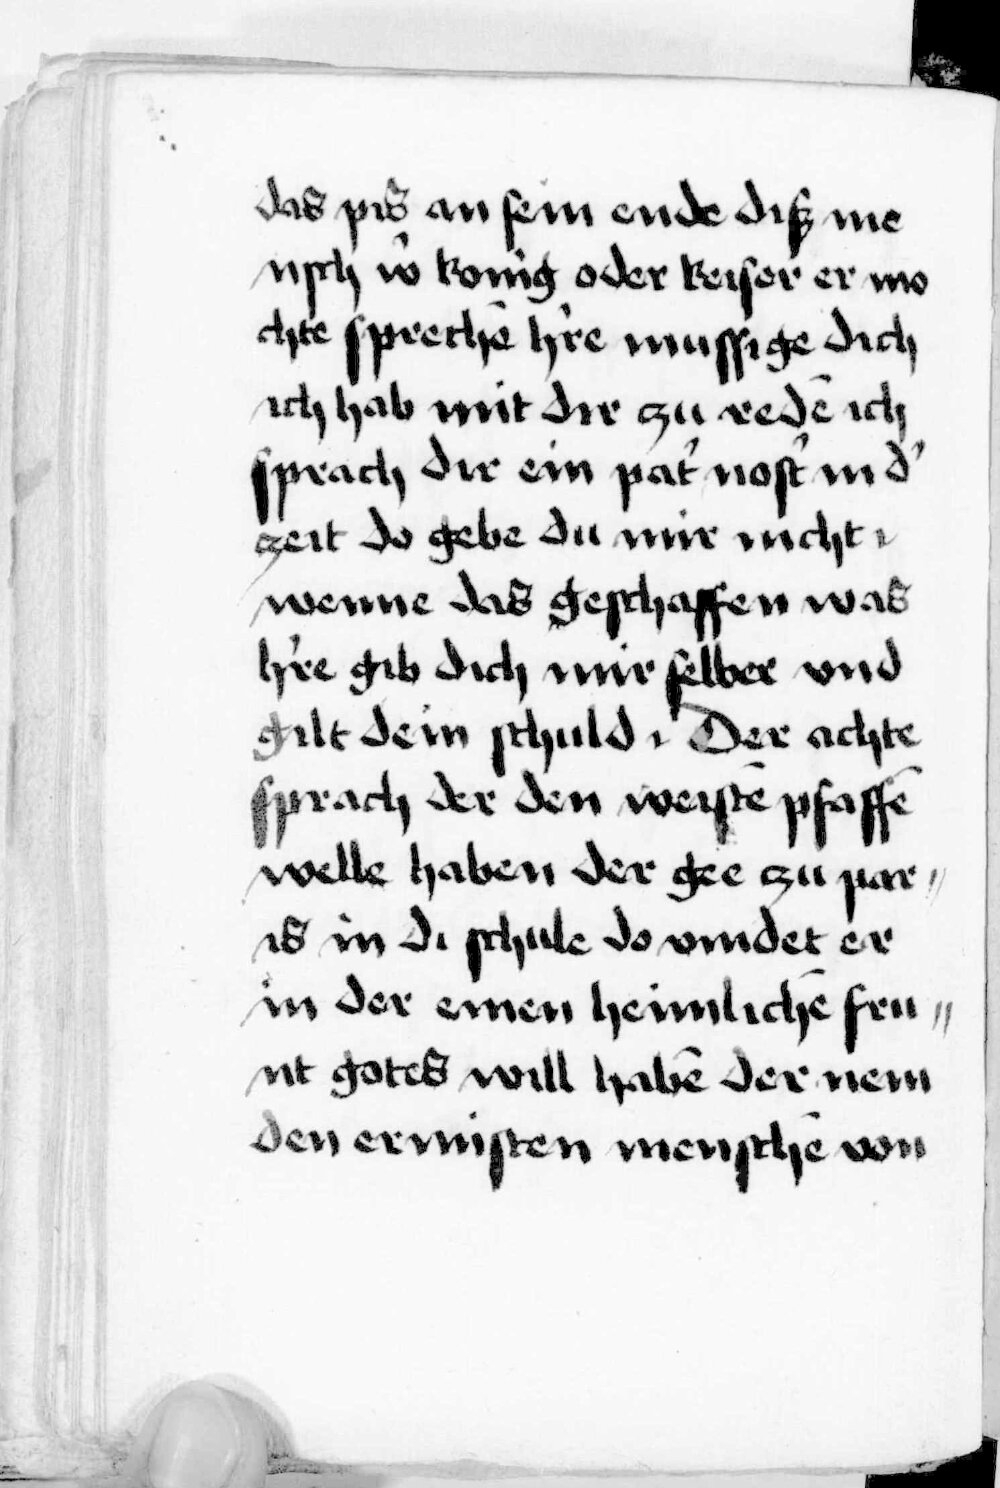 das pis an sein ende disz me
nsch w̾ konig oder keiser er mo
chte sprechē h̾re mussige dich
ich hab mit dir zu redē ich
sprach dir ein pat̾ nost̾ in d̾
zeit do gebe du mir nicht ·
wenne das geschaffen was
h̾re gib dich mir selber vnd
gilt dein schuld · Der achte
sprach der den weistē pfaffē
welle haben der gee zu par〃
is in di schule do vindet er
in der einen heimlichē fru〃
nt gotes will habē der nem
den ermisten menschē von